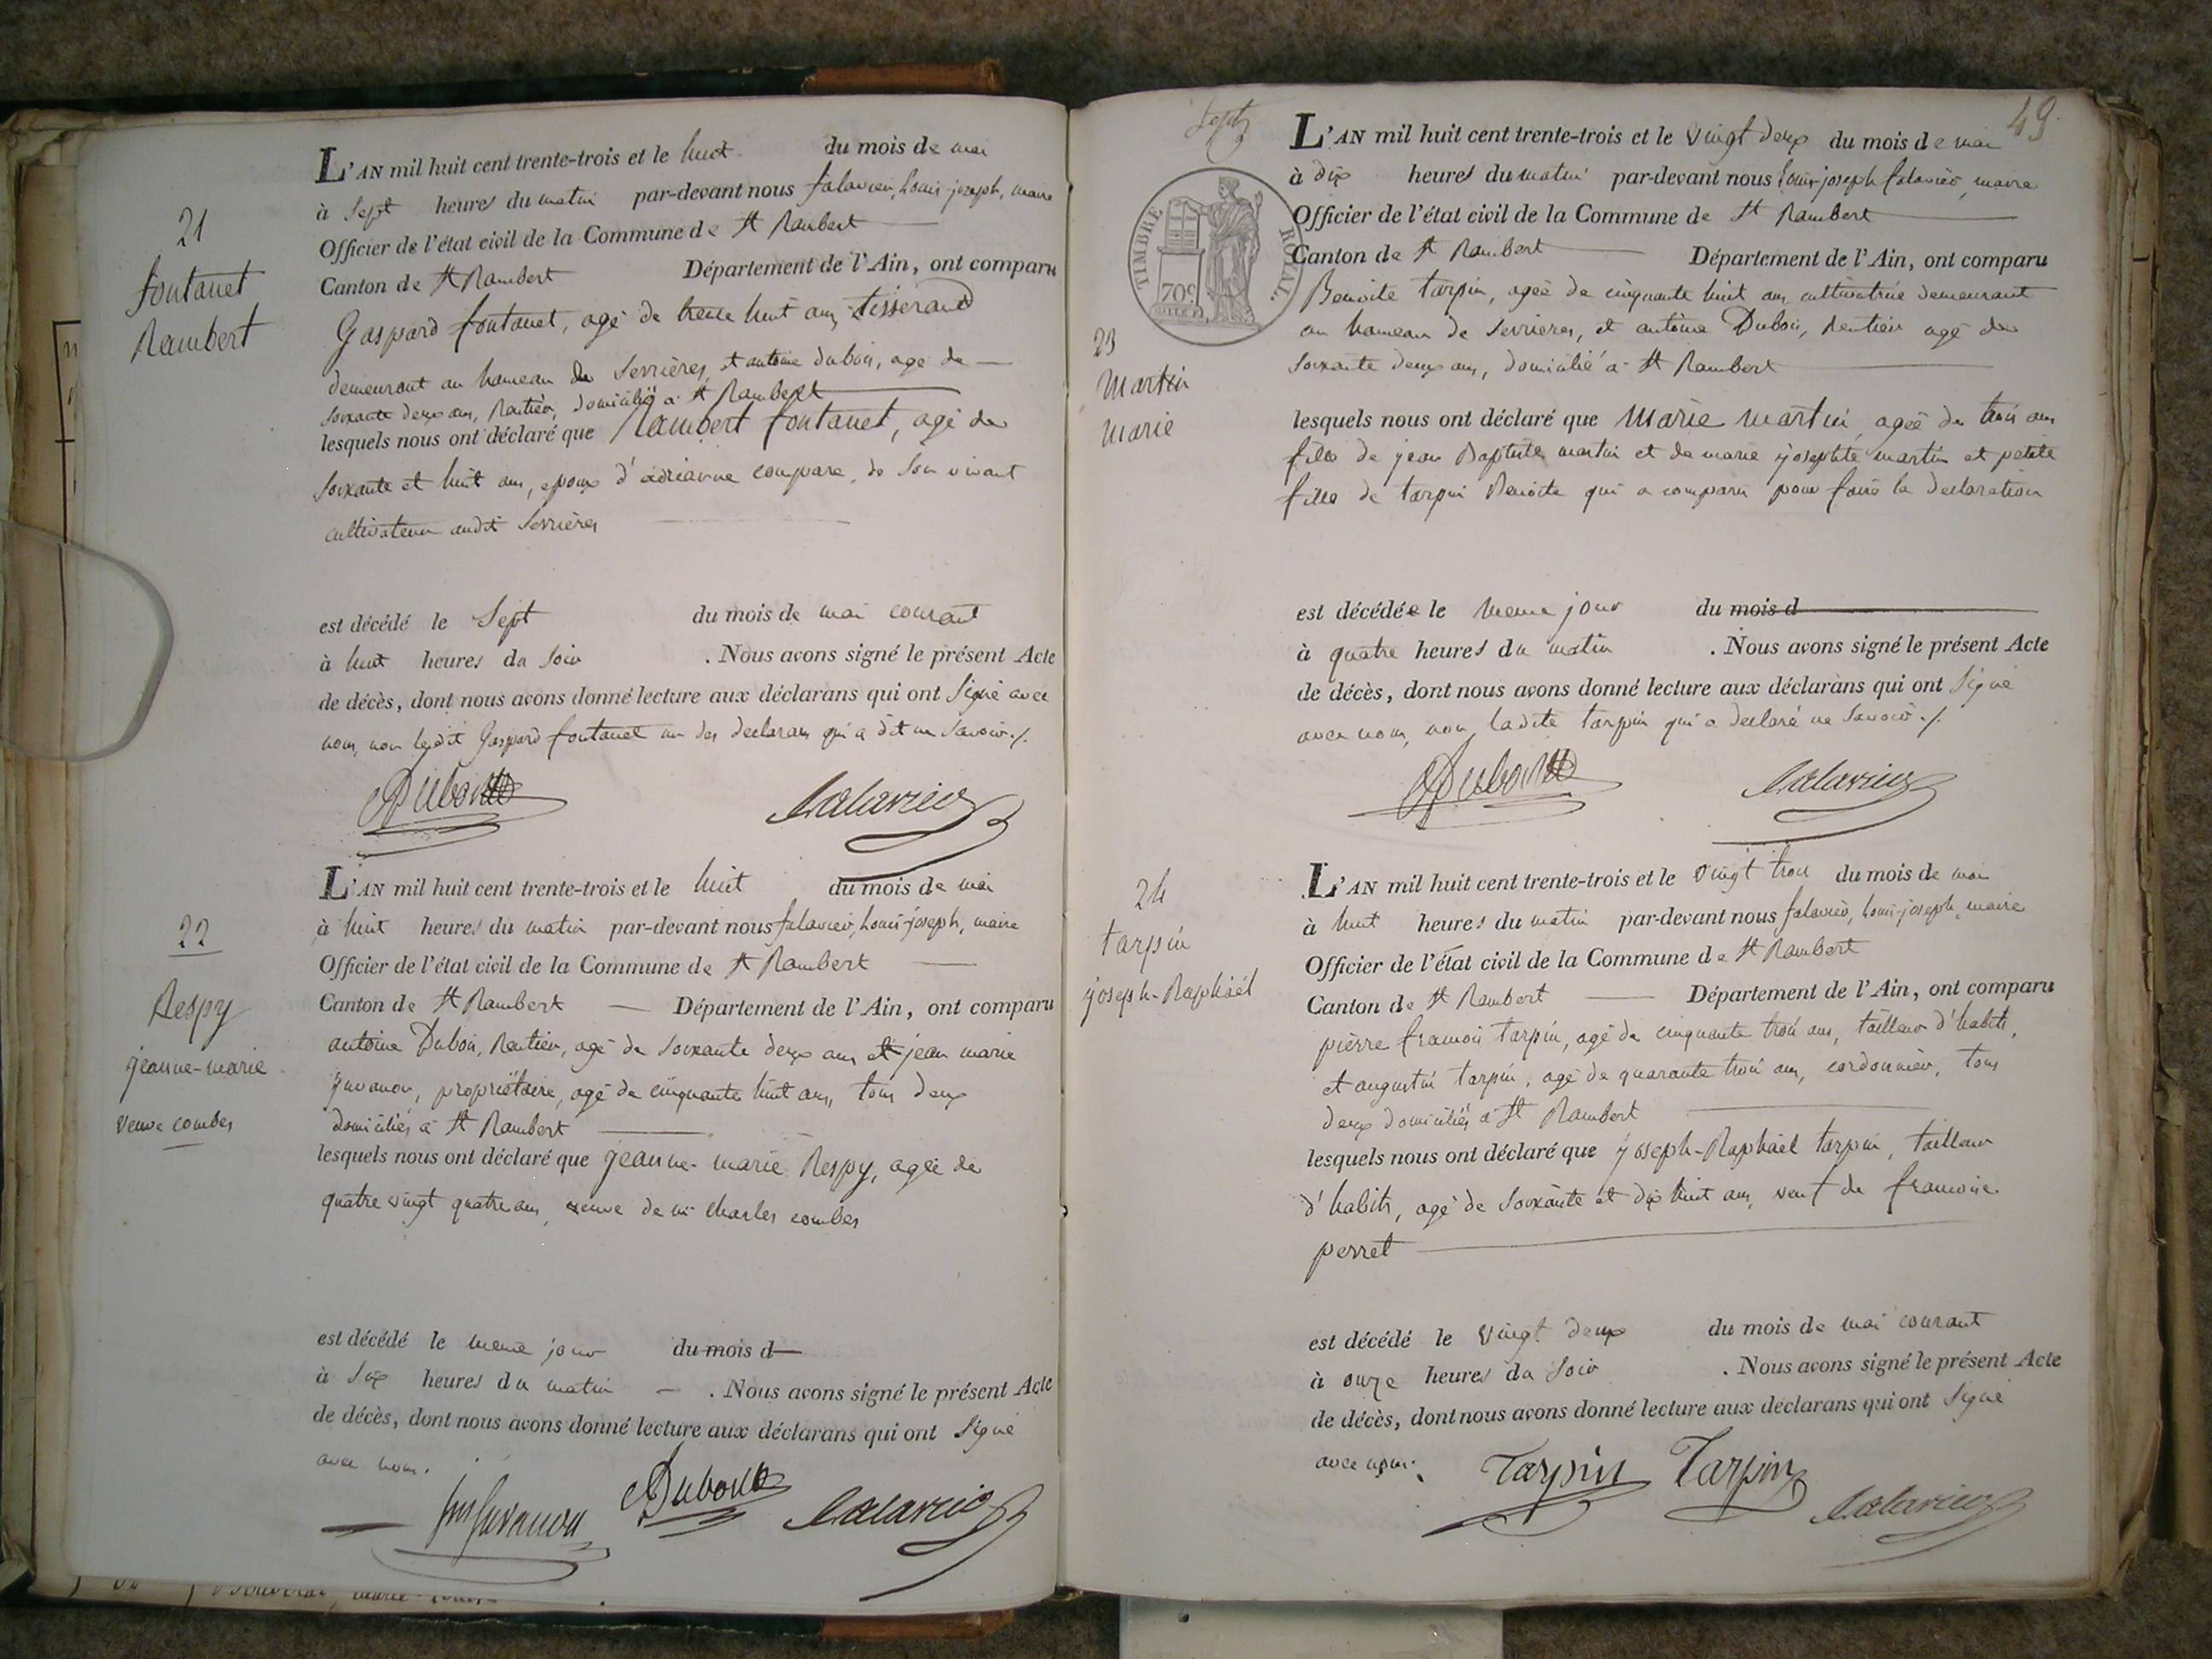 21
fontanet
Rambert
L'AN mil huit cent trente-trois et le huit du mois de mai
à sept heures du matin par-devant nous falavier, Louis-joseph, maire
Officier de l'état civil de la Commune de St Rambert
Canton de St Rambert Département de l'Ain, ont comparu
Gaspard fontanet, agé de trente huit ans, tisserand
demeurant au hameau de Serrières, et antoine dubois, agé de
soixante deux ans, Rentier, domicilié à St Rambert
lesquels nous ont déclaré que Rambert fontanet, agé de
soixante et huit ans, epoux d'adrianne compare, de son vivant
cultivateur audit Serrières
est décédé le Sept du mois de mai courant
à huit heures du soir . Nous avons signé le présent Acte
de décès, dont nous avons donné lecture aux déclarans qui ont Signé avec
nous, non ledit Gaspard fontanet un des declarans qui a dit ne Savoir ./.
Dubois falavier
22
Respy
jeanne-marie
veuve combes
L'AN mil huit cent trente-trois et le huit du mois de mai
à huit heures du matin par-devant nous falavier, Louis-joseph, maire
Officier de l'état civil de la Commune de St Rambert
Canton de St Rambert Département de l'Ain, ont comparu
antoine Dubois, Rentier, agé de soixante deux ans et jean marie
juvanon, propriétaire, agé de cinquante huit ans, tous deux
domiciliés à St Rambert
lesquels nous ont déclaré que jeanne-marie Respy, agée de
quatre vingt quatre ans, veuve de Charles combes
est décédé le meme jour du mois d
à six heures du matin . Nous avons signé le présent Acte
de décès, dont nous avons donné lecture aux déclarans qui ont Signé
avec nous.
juvanon Dubois falavier
49.
Sept
TIMBRE ROYAL.
70c
23
Martin
Marie
L'AN mil huit cent trente-trois et le vingt deux du mois de mai
à dix heures du matin par-devant nous Louis-joseph falavier, maire
Officier de l'état civil de la Commune de St Rambert
Canton de St Rambert Département de l'Ain, ont comparu
Benoite tarpin, agée de cinquante huit ans, cultivatrice demeurant
au hameau de Serrieres, et antoine Dubois, Rentier agé de
soixante deux ans, domicilié à St Rambert
lesquels nous ont déclaré que Marie martin, agée de trois ans
fille de jean Baptiste martin et de marie josephte martin et petite
fille de tarpin Benoite qui a comparu pour faire la declaration
est décédée le meme jour du mois d
à quatre heures du matin . Nous avons signé le présent Acte
de décès, dont nous avons donné lecture aux déclarans qui ont Signé
avec nous, non ladite tarpin qui a declaré ne Savoir ./.
Dubois falavier
24
tarpin
joseph-Raphaël
L'AN mil huit cent trente-trois et le vingt trois du mois de mai
à huit heures du matin par-devant nous falavier, Louis-joseph, maire
Officier de l'état civil de la Commune de St Rambert
Canton de St Rambert Département de l'Ain, ont comparu
pierre francois tarpin, agé de cinquante trois ans, tailleur d'habits,
et augustin tarpin, agé de quarante trois ans, cordonnier, tous
deux domiciliés à St Rambert
lesquels nous ont déclaré que joseph-Raphaël tarpin, tailleur
d'habits, agé de soixante et dix huit ans, veuf de francoise
perret
est décédé le vingt deux du mois de mai courant
à onze heures du soir . Nous avons signé le présent Acte
de décès, dont nous avons donné lecture aux déclarans qui ont Signé
avec nous.
Tarpin Tarpin falavier